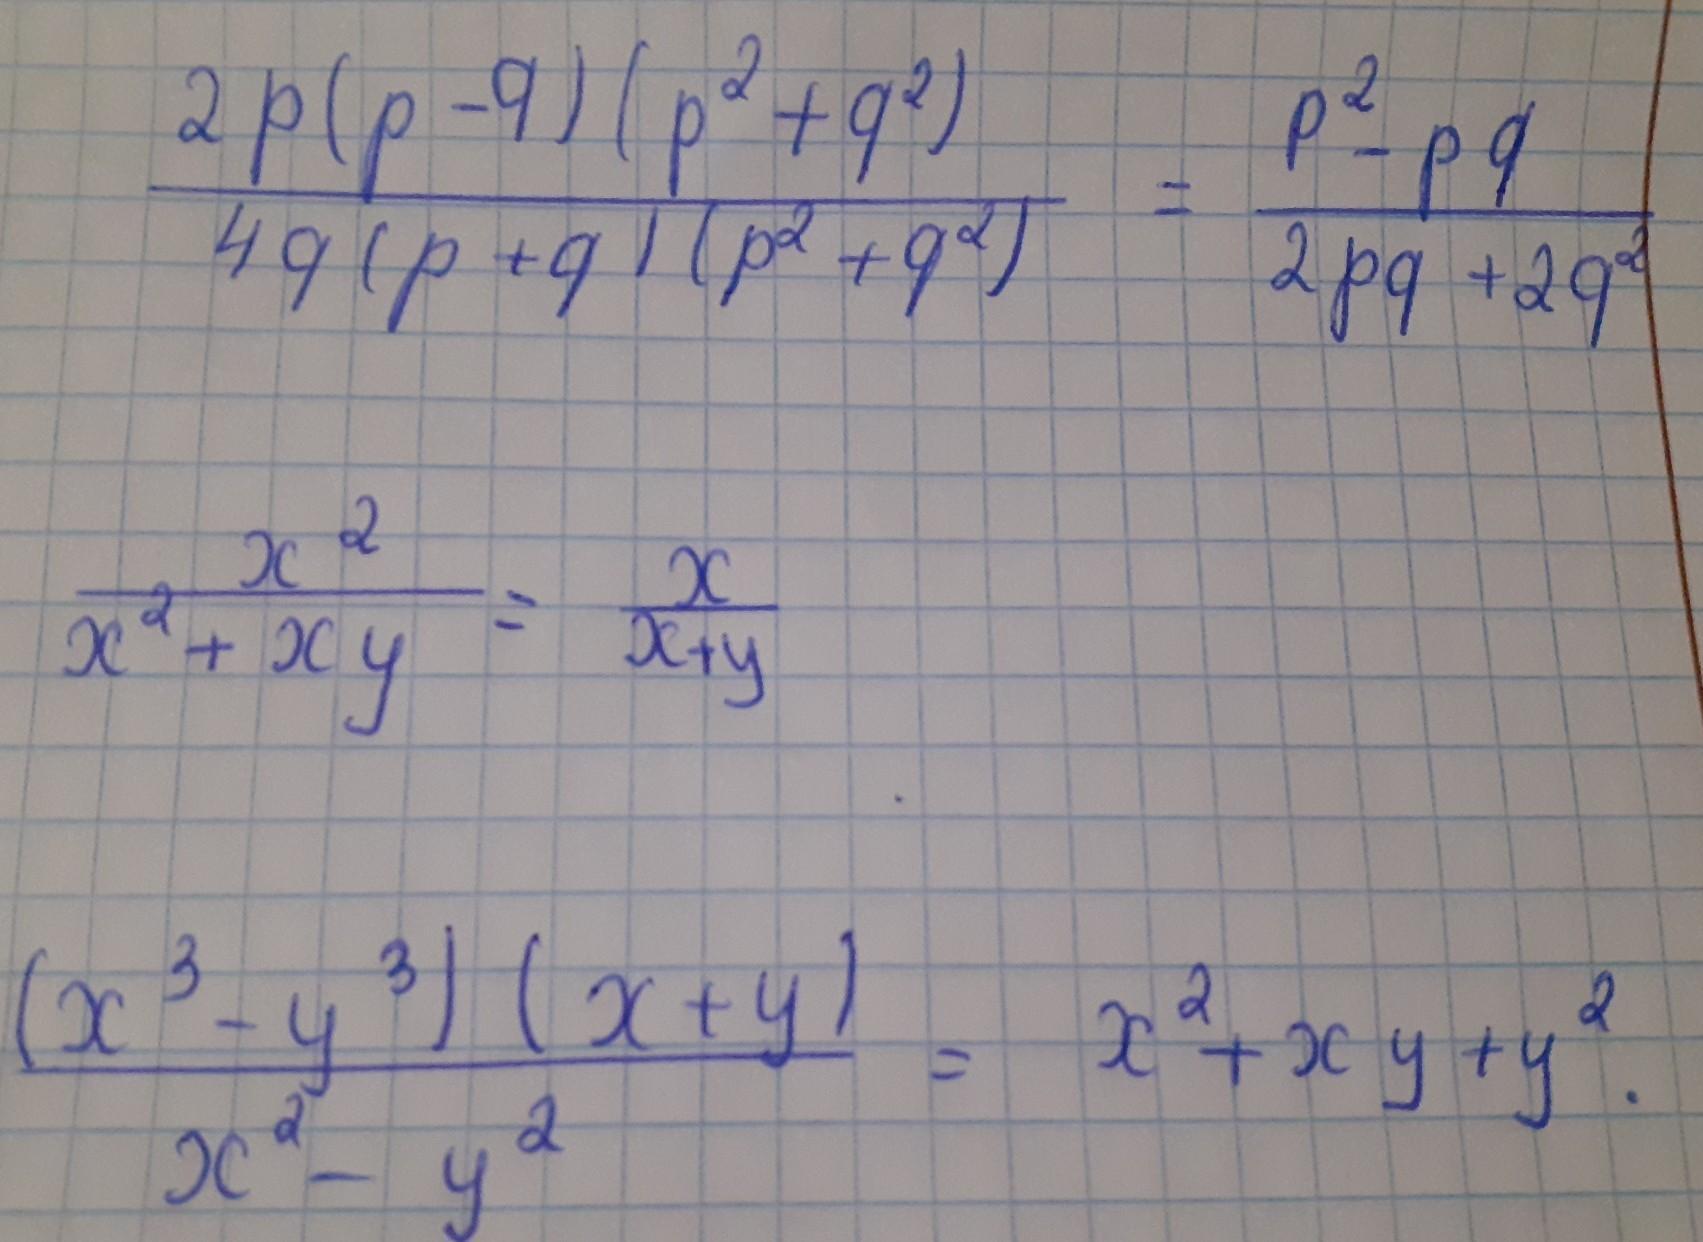 2p(p-q)(p²+q²) / 4q(p+q)(p²+q²) = p²-pq / 2pq+2q²
x² / x²+xy = x / x+y
(x³-y³)(x+y) / x²-y² = x²+xy+y².